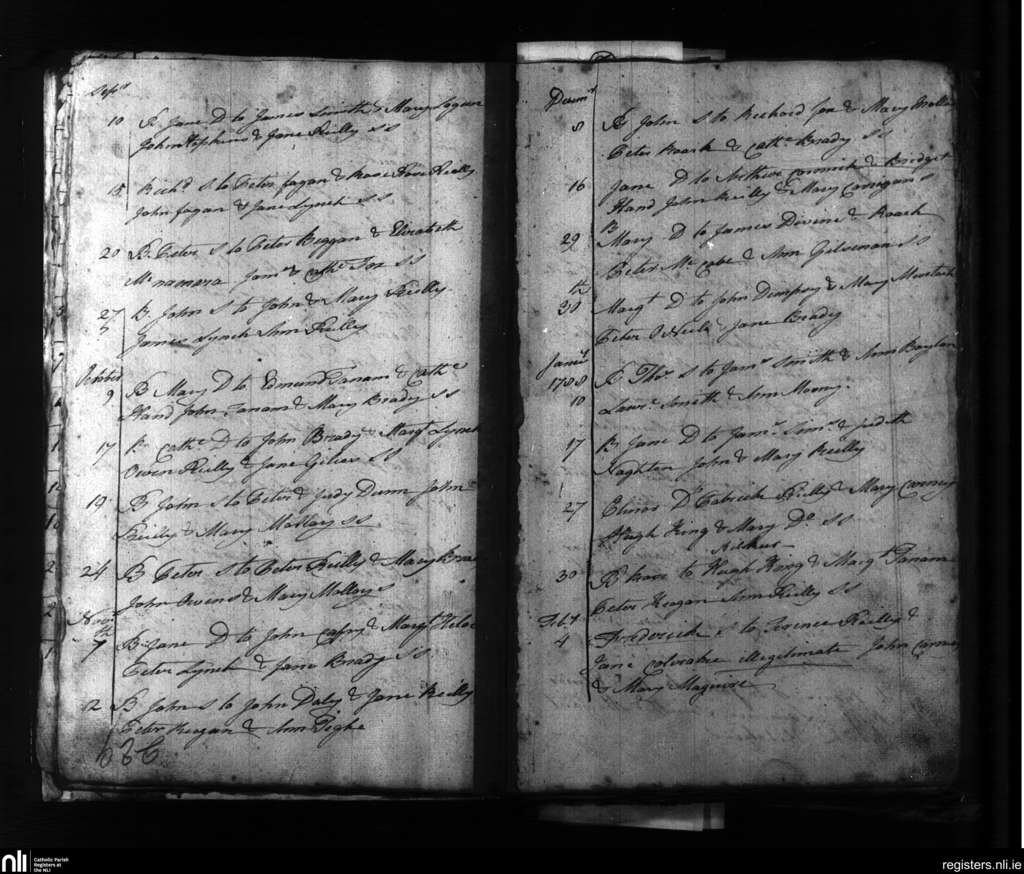 Sepr
10 B Jane D to James Smith & Mary
John Hopkins & Jane Reilly SS
15 Rich'd S to Peter Fagan & Rose Reilly
John Fagan & Jane Lynch SS
20 B Peter S to Peter Keggan & Elizabeth
McNamara Jams & Cathe Fox SS
27 B John S to John & Mary Reilly
James Lynch Ann Reilly
October
9 B Mary D to Edmund Fanam & Cathe
Hand John Fanam & Mary Brady SS
17 B Cathe D to John Brady & Margt Lynch
Owen Reilly & Jane SS
19 B John S to Peter & Judy Dunn John
Reily & Mary Mallay SS
24 B Peter S to Peter Reilly & Mary
John Owens & Mary Malloy s
Novr
7th B Jane D to John & Margt
Peter Lynch & Jane Brady SS
12 B John S to John Daly & Jane Reilly
Peter Keegan & Ann Tighe
Decemr
8 B John S to Richard Fox & Mary
Peter Roark & Cathe Brady SS
16 Jane D to Arthur Cormick & Bridget
Hand John Reilly & Mary Corrigan s
29 B Mary D to James Divine & Roark
Peter McCabe & Ann SS
30th Margt D to John Dempsy & Mary
Peter O Neile & Jane Brady
Janry
1788
10 B Thos S to Jams Smith & Ann Boylan
Lawr. Smith & Ann Moony.
17 B Jane D to Jams & Judith
Naghten John & Mary Reilly
27 Elinor D Patrick Reilly & Mary
Hugh King & Mary Do SS
30 B to Hugh King & Margt Fanam
Peter Keegan Ann Reilly SS
Feby
4 Frederick S to Terence Reilly &
Jane illegitimate John
& Mary Maguire
nli
Catholic Parish
Registers at
the NLI
registers.nli.ie